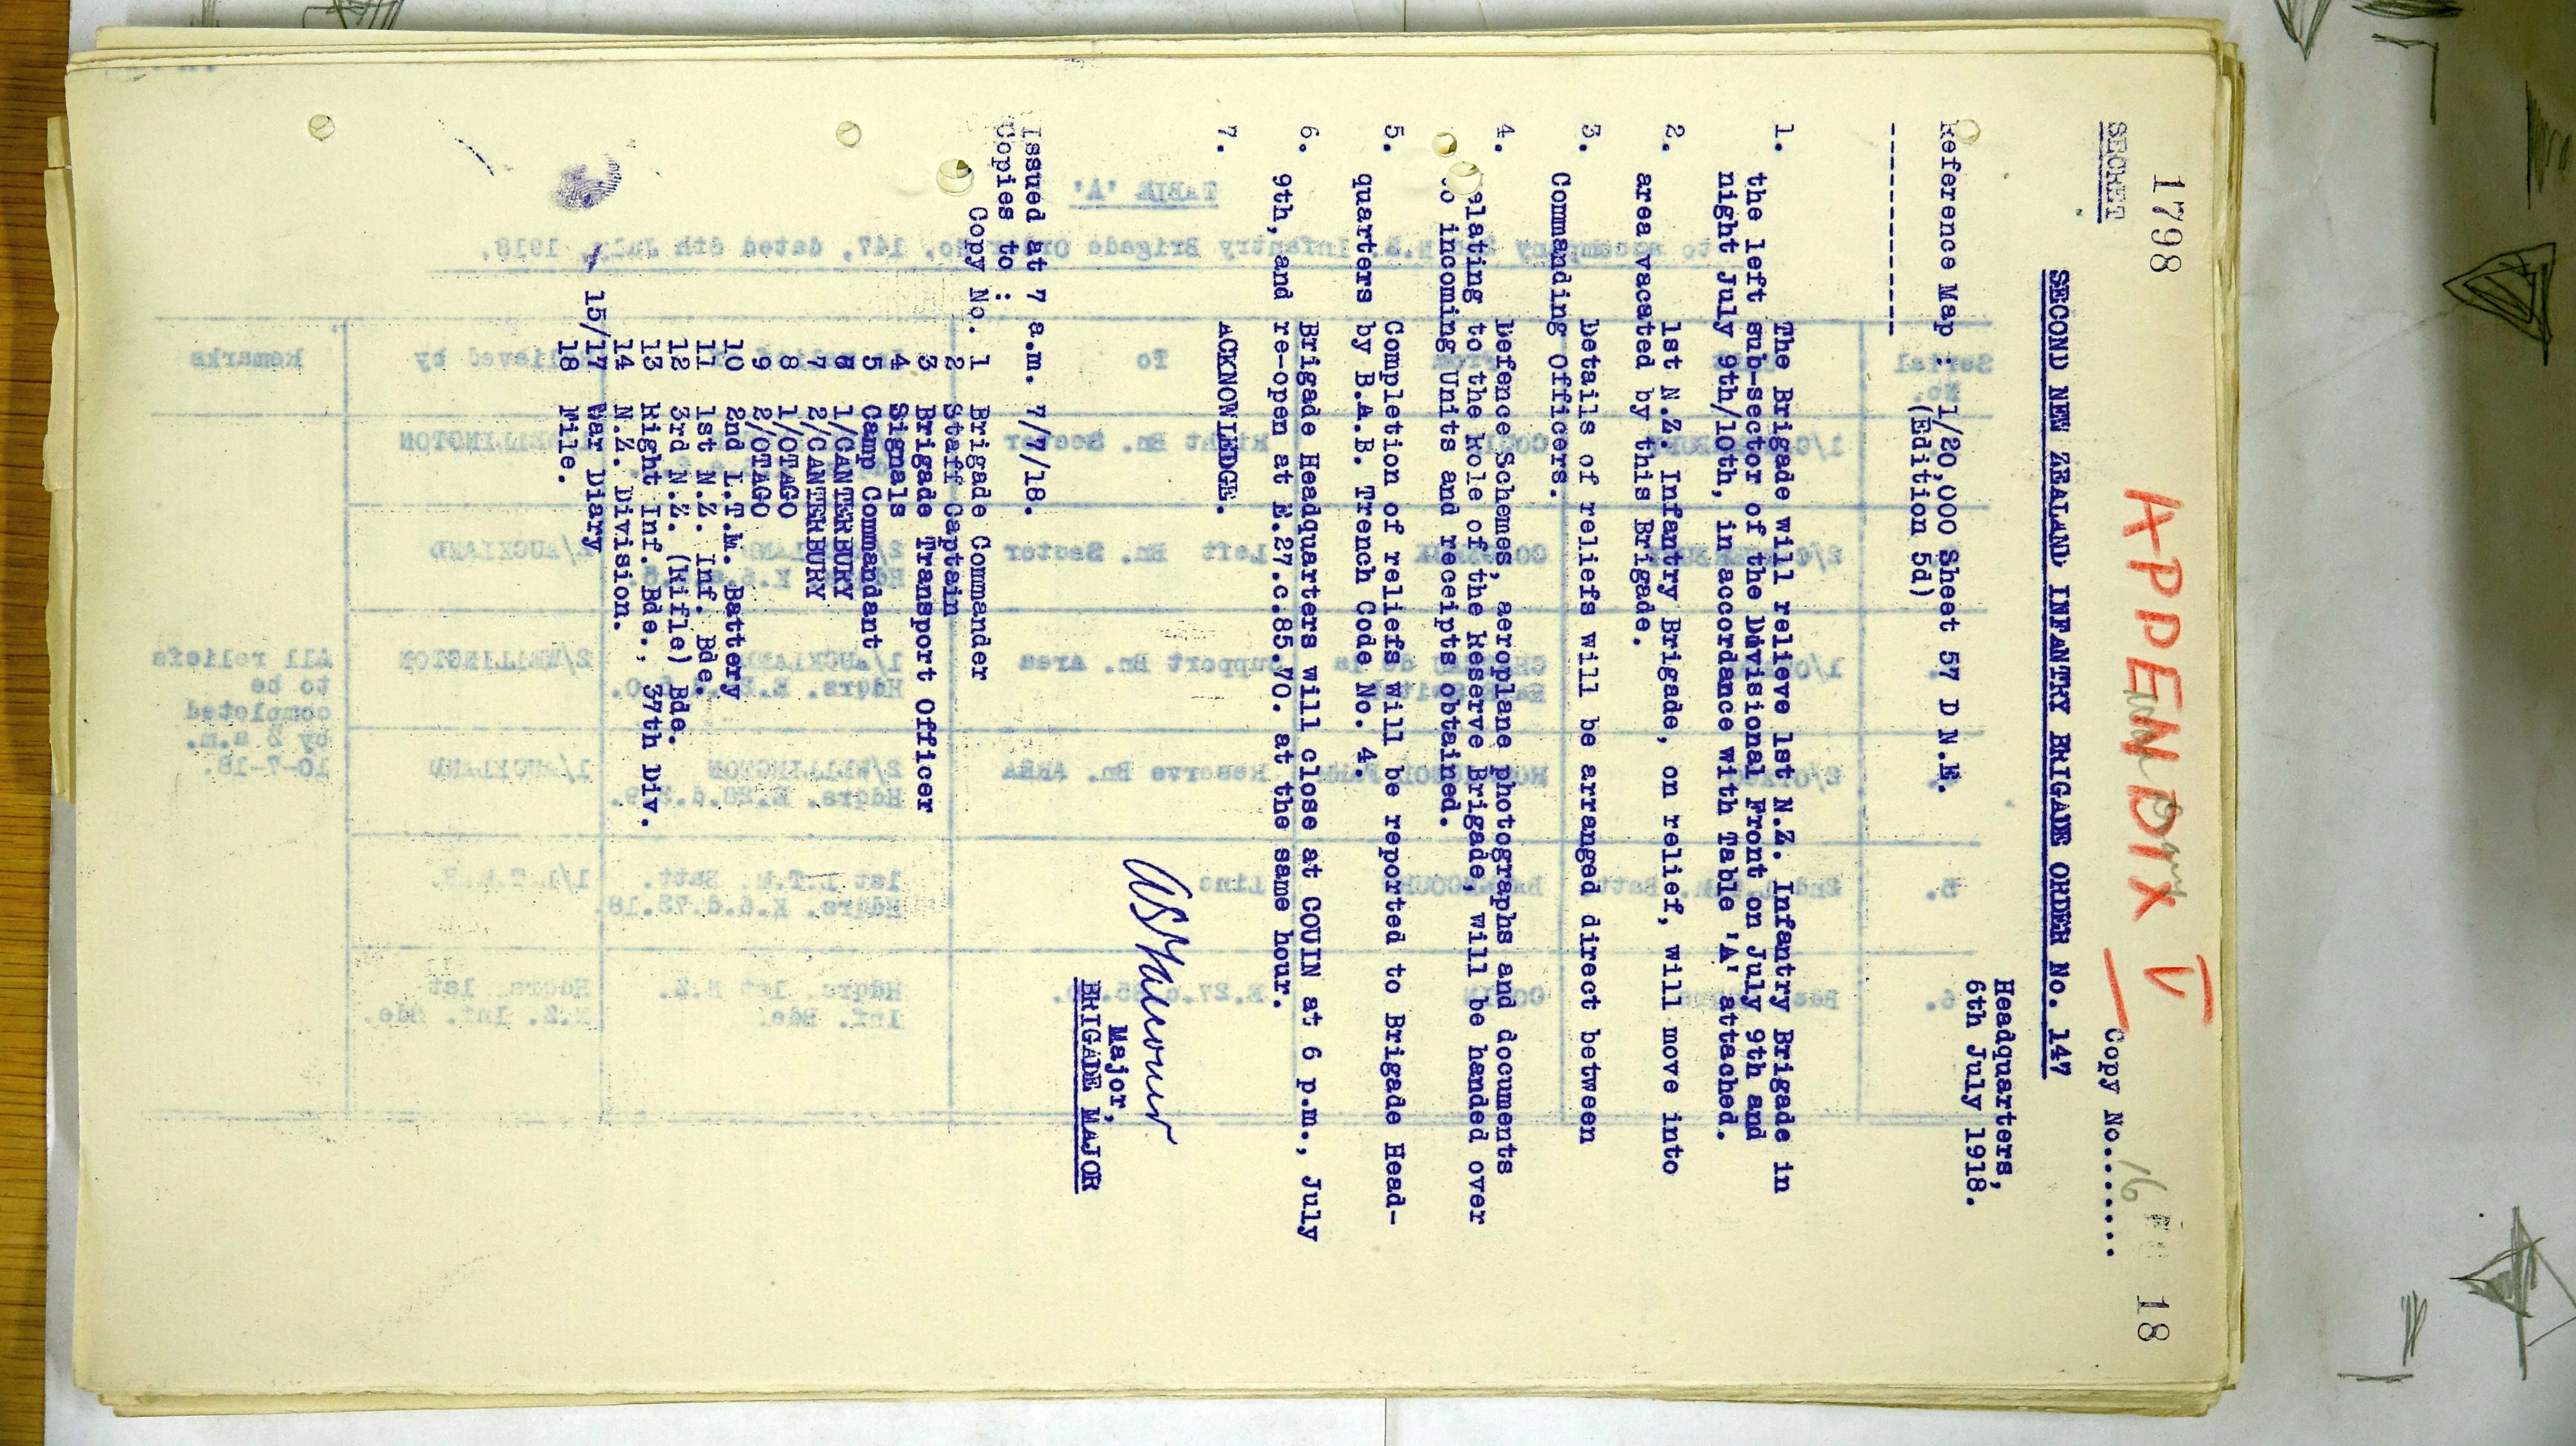 1798
18
APPENDIX V
SECRET
Copy No. 16
SECOND NEW ZEALAND INFANTRY BRIGADE ORDER No. 147
Headquarters,
6th July 1918.
Reference Map : 1/20,000 Sheet 57 D N.E.
(Edition 5d)
1. The Brigade will relieve 1st N.Z. Infantry Brigade in
the left sub-sector of the Divisional Front on July 9th and
night July 9th/10th, in accordance with Table 'A' attached.
2. 1st N.Z. Infantry Brigade, on relief, will move into
area vacated by this Brigade.
3. Details of reliefs will be arranged direct between
Commanding Officers.
4. Defence Schemes, aeroplane photographs and documents
relating to the Role of the Reserve Brigade, will be handed over
to incoming Units and receipts obtained.
5. Completion of reliefs will be reported to Brigade Head-
quarters by B.A.B. Trench Code No. 4.
6. Brigade Headquarters will close at COUIN at 6 p.m., July
9th, and re-open at E.27.c.85.70. at the same hour.
7. ACKNOWLEDGE.
Major,
BRIGADE MAJOR
Issued at 7 a.m. 7/7/18.
Copies to :
Copy No. 1 Brigade Commander
2 Staff Captain
3 Brigade Transport Officer
4 Signals
5 Camp Commandant
6 1/CANTERBURY
7 2/CANTERBURY
8 1/OTAGO
9 2/OTAGO
10 2nd L.T.M. Battery
11 1st N.Z. Inf. Bde.
12 3rd N.Z. (Rifle) Bde.
13 Right Inf. Bde., 37th Div.
14 N.Z. Division.
15/17 War Diary
18 File.